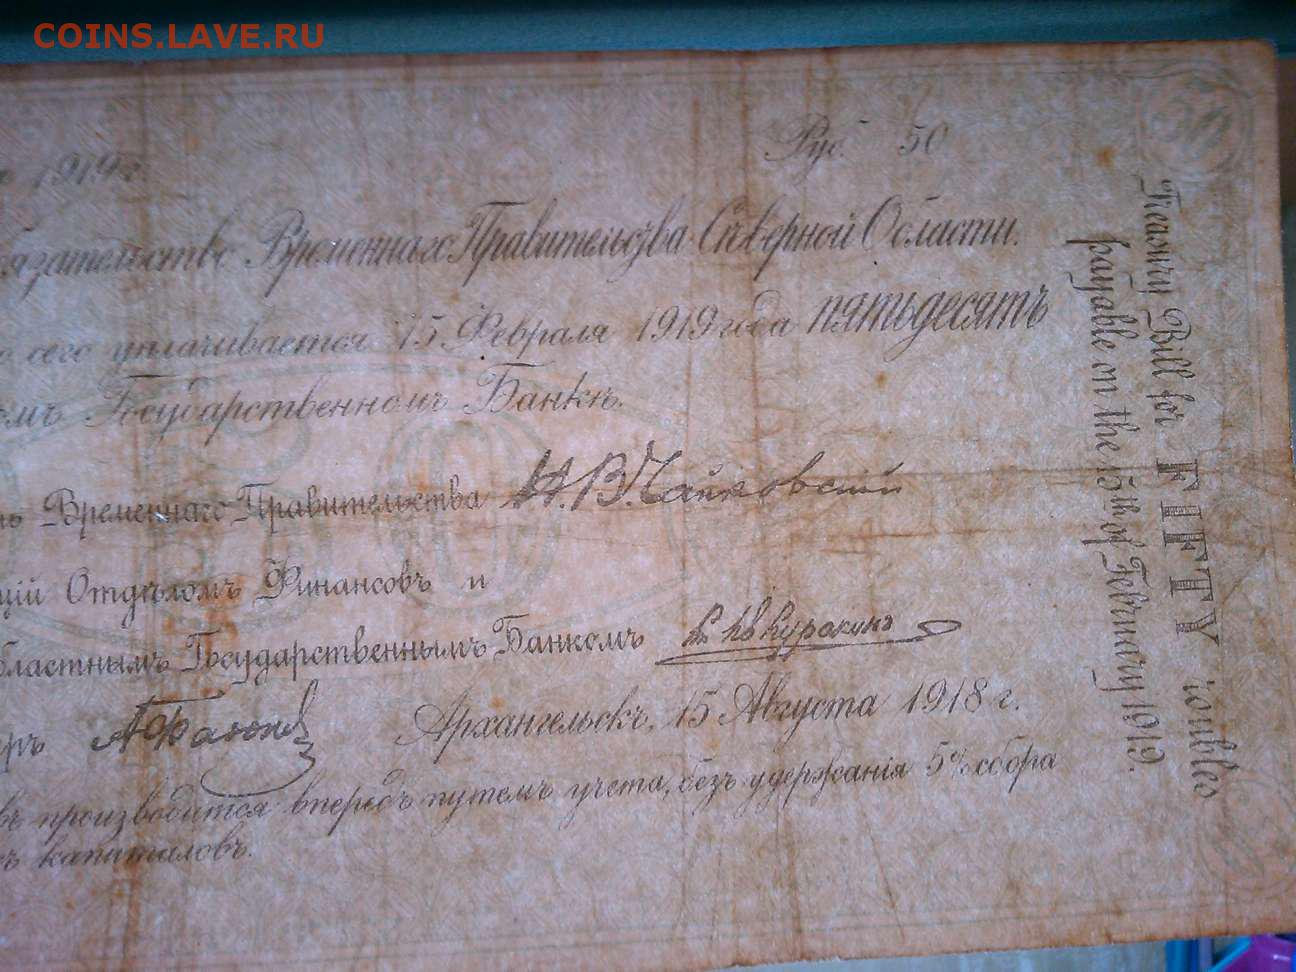 COINS.LAVE.RU
1919 г
Руб. 50
50
бязательство Временнаго Правительства Сѣверной Области.
сего уплачивается 15 Февраля 1919 года ПЯТЬДЕСЯТЪ
омъ Государственномъ Банкѣ.
ль Временнаго Правительства Н. В. Чайковскій
щій Отдѣломъ Финансовъ и
бластнымъ Государственнымъ Банкомъ Кн Куракинъ
ръ
Архангельскъ, 15 Августа 1918 г.
въ производится впередъ путемъ учета, безъ удержанія 5% сбора
съ капиталовъ.
Treasury Bill for FIFTY roubles
payable on the 15th of February 1919.